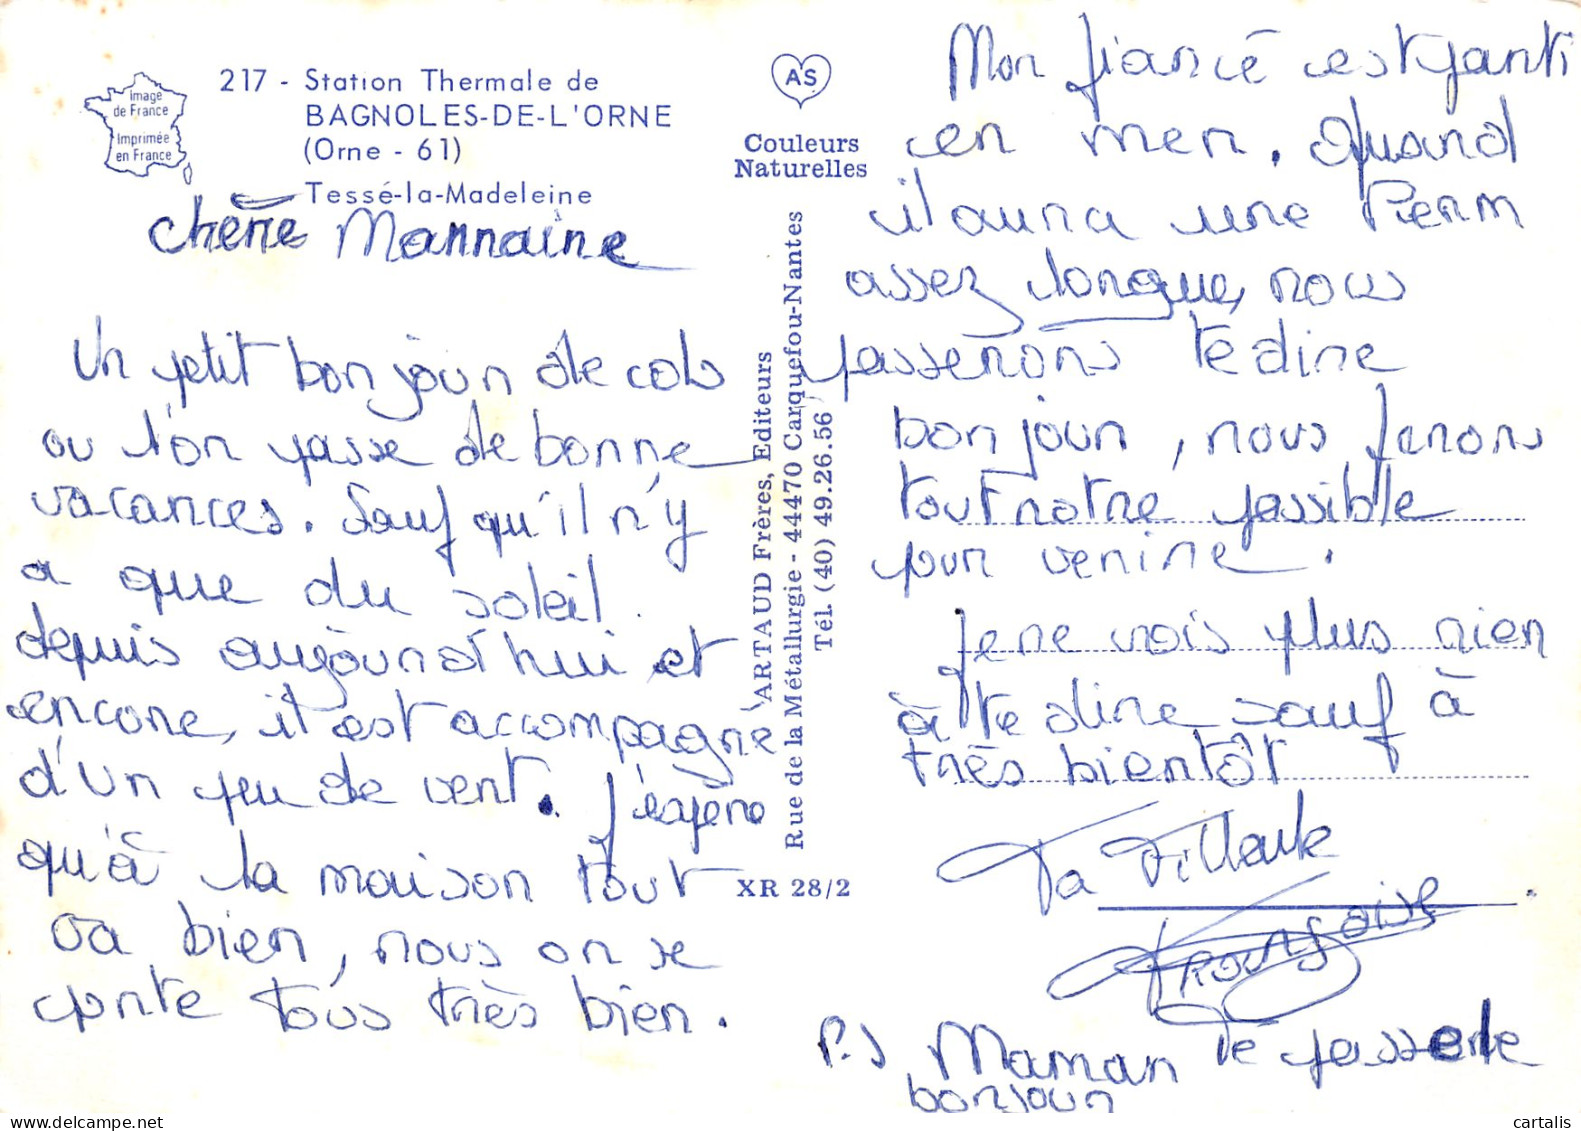 Image
de France
Imprimée
en France
217 - Station Thermale de
BAGNOLES-DE-L'ORNE
(Orne - 61)
Tessé-la-Madeleine
AS.
Couleurs
Naturelles
ARTAUD Frères, Editeurs
Rue de la Métallurgie - 44470 Carquefou-Nantes
Tél. (40) 49.26.56
XR 28/2
chère Marraine
Un petit bonjour de cols
ou l'on passe de bonne
vacances. Sauf qu'il n'y
a que du soleil
depuis aujourd'hui et
encore, il est accompagné
d'un peu de vent. J'espère
qu'à la maison tout
va bien, nous on se
porte tous très bien.
Mon fiancé est parti
en mer. Quand
il aura une Perm
assez longue, nous
passerons te dire
bonjour, nous ferons
tout notre possible
pour venire.
Je ne vois plus rien
à te dire sauf à
très bientôt
Ta
Françoise
P.S Maman te passe le
bonjour
cartalis
www.delcampe.net